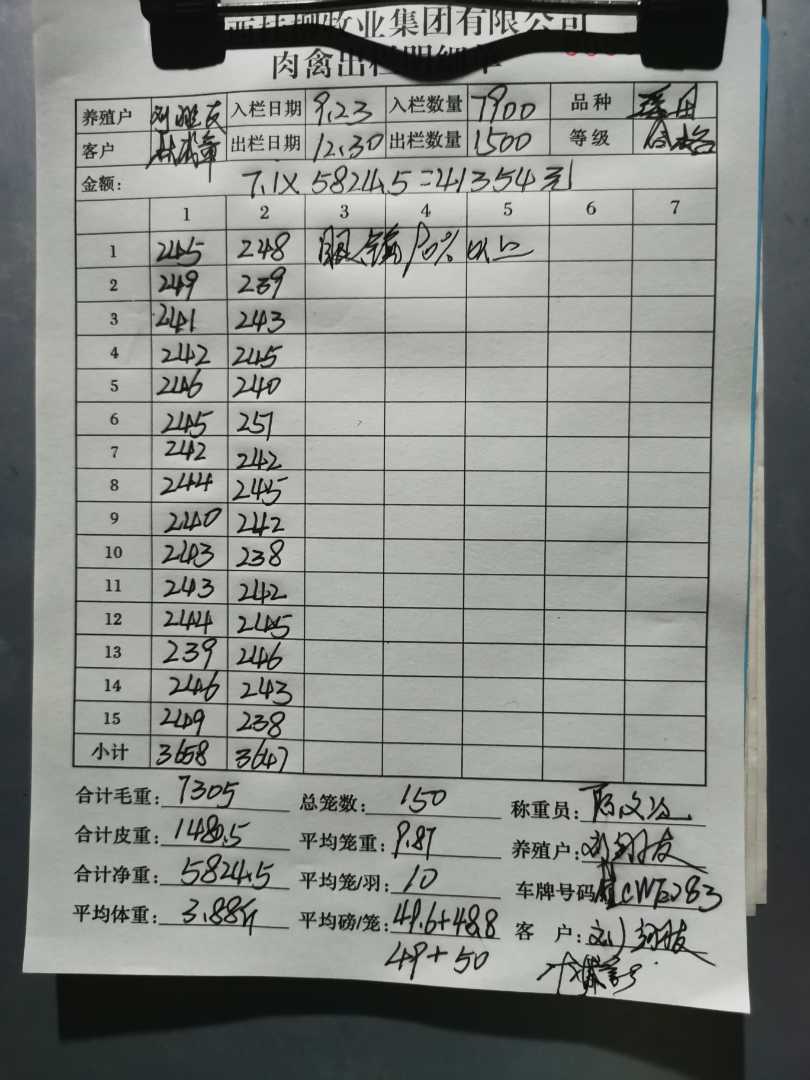 牧业集团有限公司
肉禽出栏明细单
养殖户 入栏日期 9.23 入栏数量 7900 品种
客户 出栏日期 12.30 出栏数量 1500 等级
金额: 7.1X 5824.5=41354元
1 2 3 4 5 6 7
1 245 248 90% 以上
2 249 239
3 241 243
4 242 245
5 246 240
6 245 251
7 242 242
8 244 245
9 240 242
10 243 238
11 243 242
12 244 245
13 239 246
14 246 243
15 249 238
小计 3658 3647
合计毛重: 7305 总笼数: 150 称重员:
合计皮重: 1480.5 平均笼重: 9.87 养殖户:
合计净重: 5824.5 平均笼/羽: 10 车牌号码
平均体重: 3.88斤 平均磅/笼: 49.6+48.8 客 户:
49+50